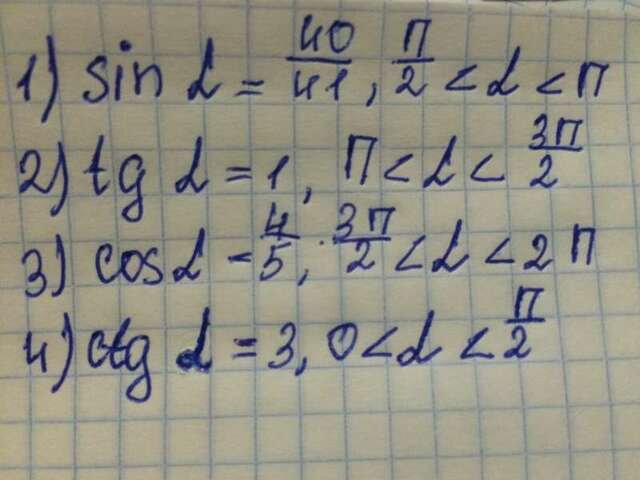 1) sin α = 40/41, π/2 < α < π
2) tg α = 1, π < α < 3π/2
3) cos α = 4/5, 3π/2 < α < 2π
4) ctg α = 3, 0 < α < π/2